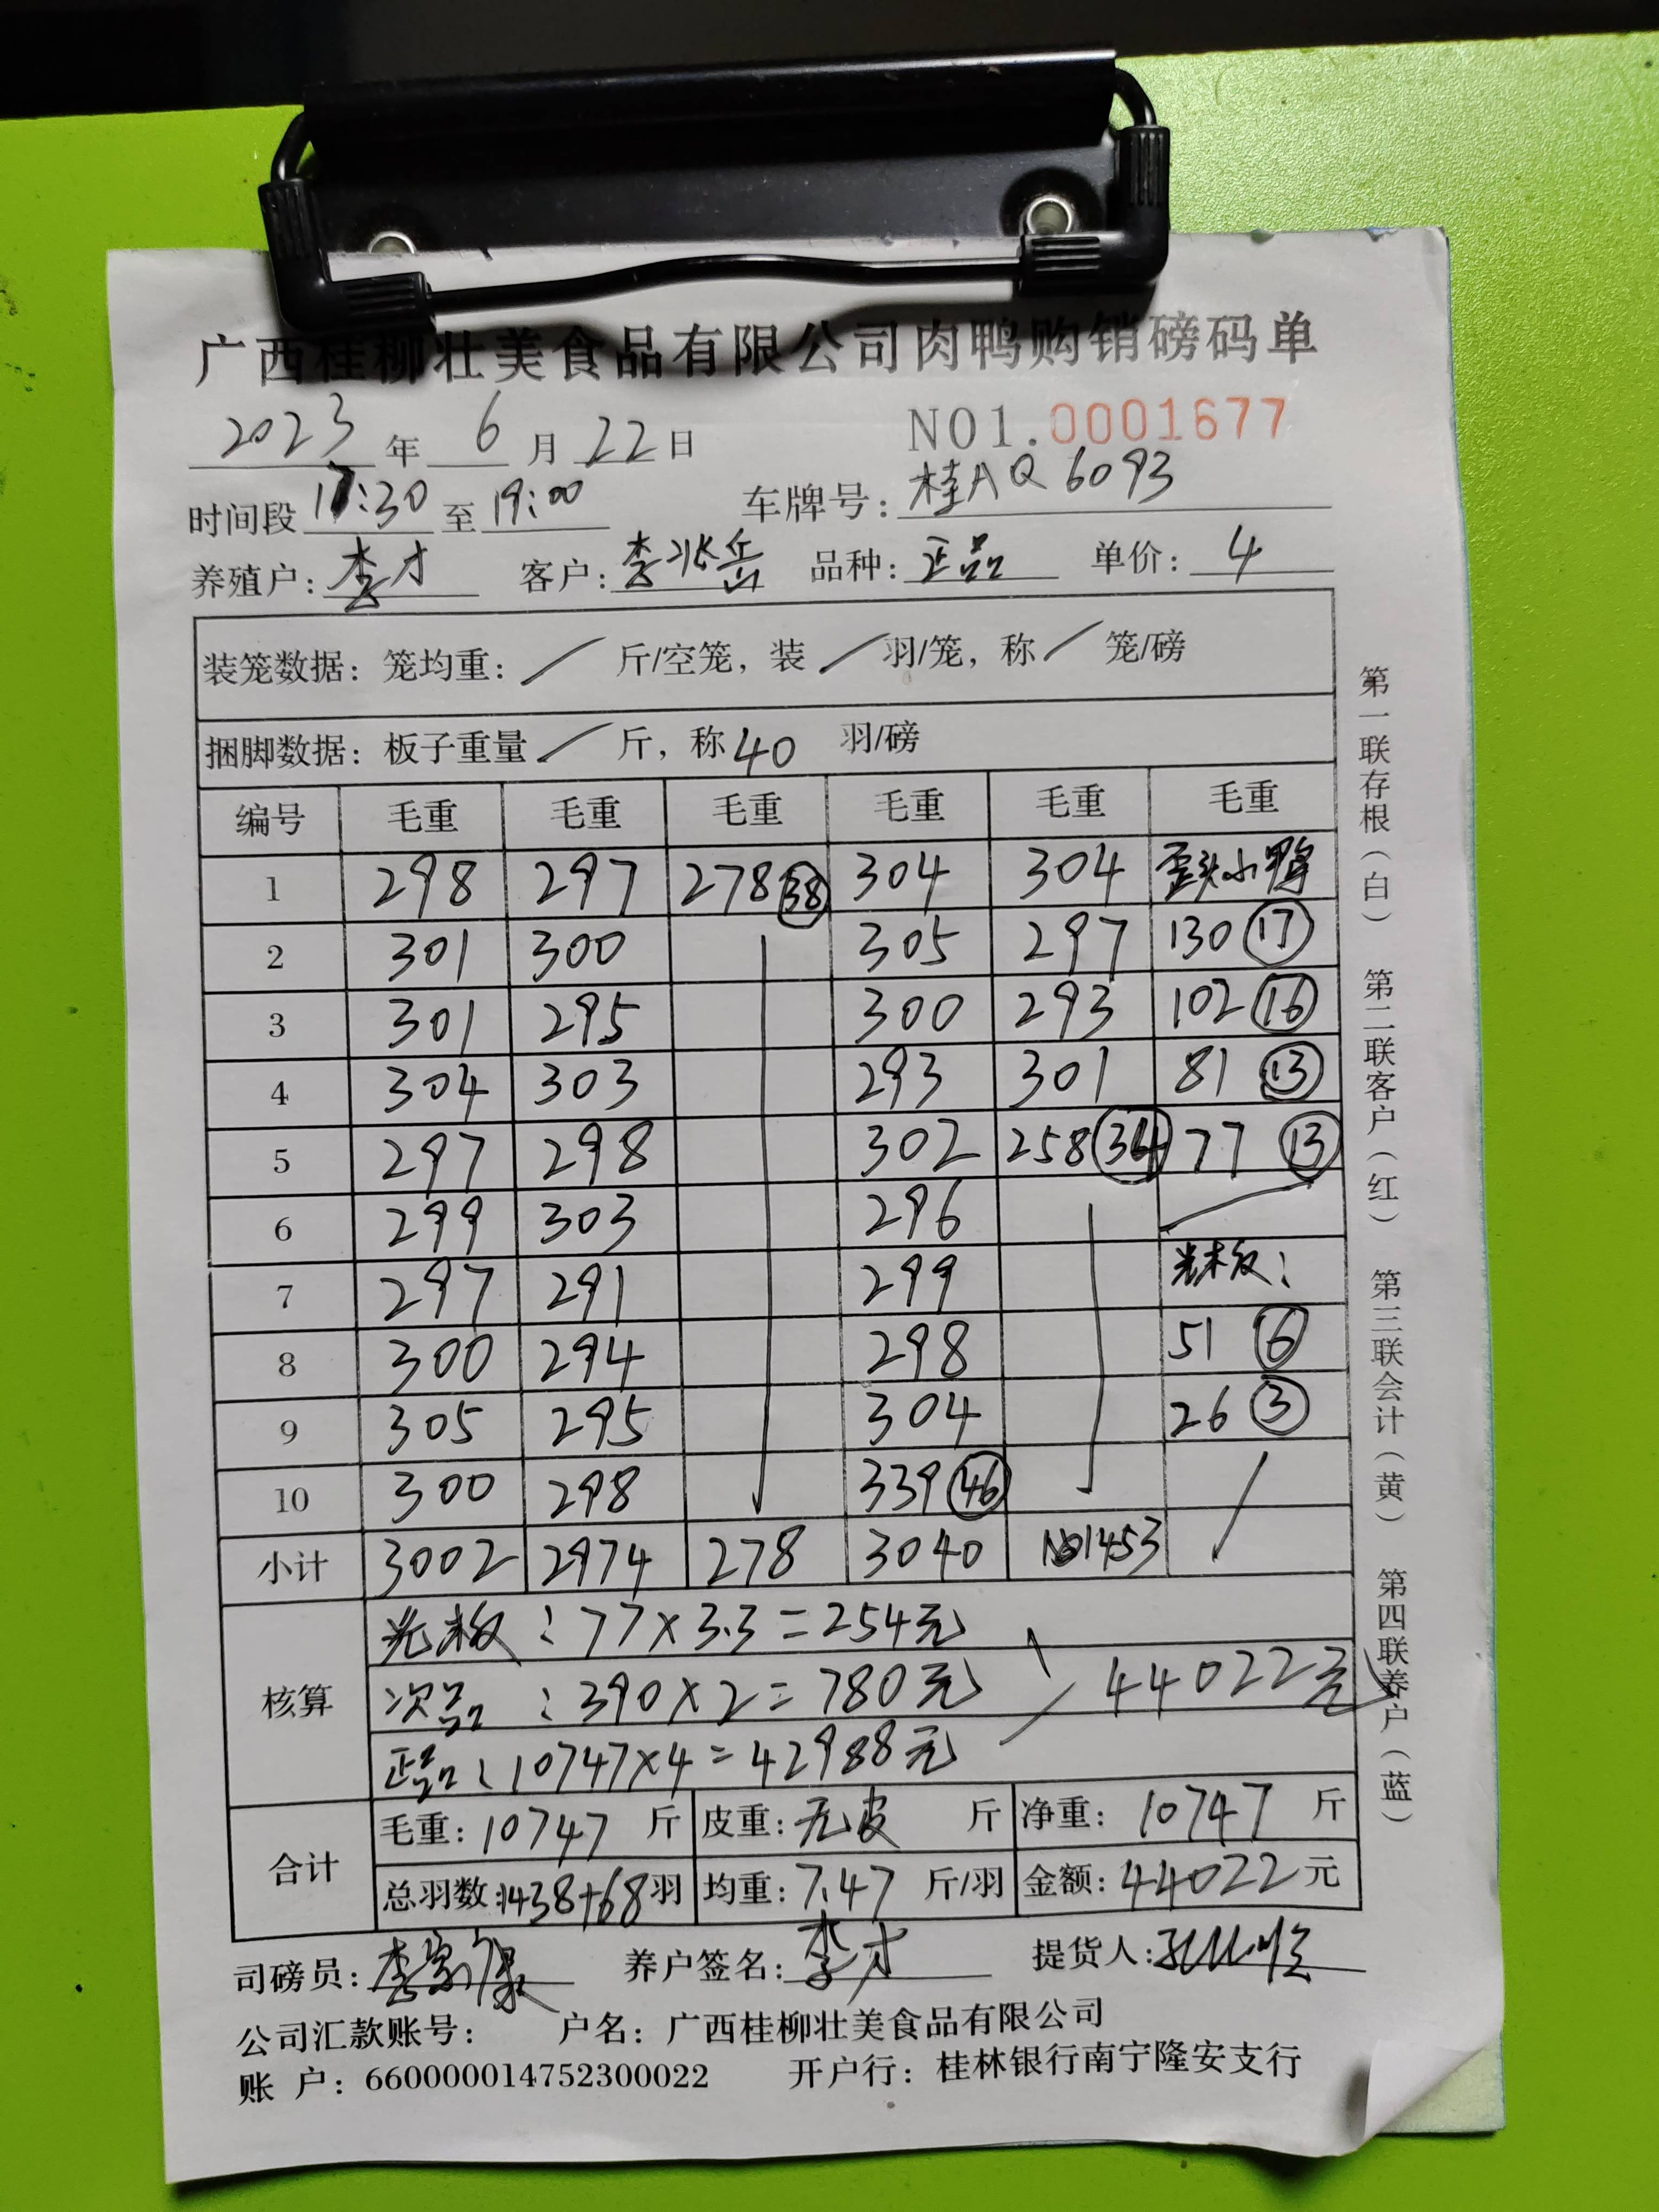 广西桂柳壮美食品有限公司肉鸭购销磅码单
2023年6月22日 NO1.0001677
时间段17:30至19:00 车牌号:桂AQ6093
养殖户:李才 客户:李兆岳 品种:正品 单价:4
装笼数据:笼均重:/斤/空笼,装/羽/笼,称/笼/磅
捆脚数据:板子重量/斤,称40羽/磅
编号 毛重 毛重 毛重 毛重 毛重 毛重
1 298 297 278(38) 304 304 歪头小鸭
2 301 300 305 297 130(17)
3 301 295 300 293 102(16)
4 304 303 293 301 81(13)
5 297 298 302 258(34) 77(13)
6 299 303 296
7 297 291 299 光板:
8 300 294 298 51(6)
9 305 295 304 26(3)
10 300 298 339(46)
小计 3002 2974 278 3040 1453
核算
光板:77×3.3=254元
次品:390×2=780元 44022元
正品:10747×4=42988元
合计
毛重:10747斤 皮重:无皮斤 净重:10747斤
总羽数:1438+68羽 均重:7.47斤/羽 金额:44022元
司磅员:李家 养户签名:李才 提货人:
公司汇款账号: 户名:广西桂柳壮美食品有限公司
账户:660000014752300022 开户行:桂林银行南宁隆安支行
第一联存根(白) 第二联客户(红) 第三联会计(黄) 第四联养户(蓝)